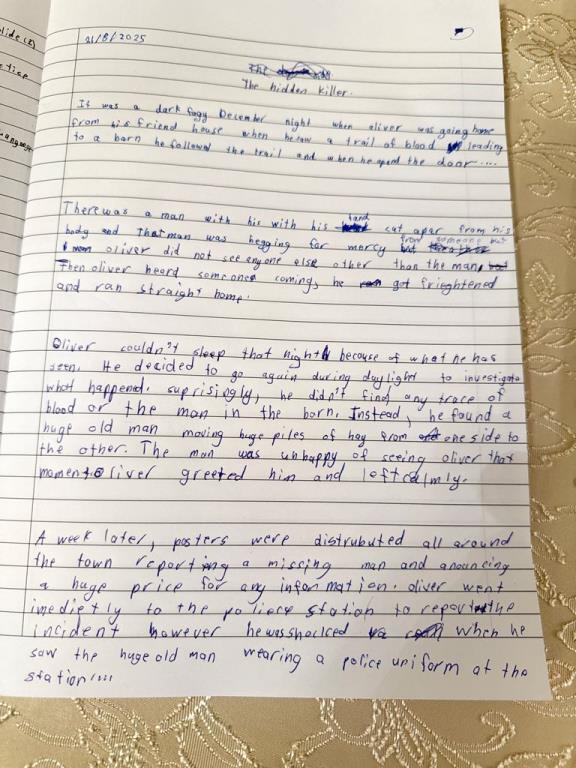 lide(2)
ctice
anguage
21/8/2025
The
The hidden killer.
It was a dark fogy December night when oliver was going home
from his friend house when he saw a trail of blood leading
to a barn he followed the trail and when he opend the door....
There was a man with his with his hand cut apar from his
body and That man was begging for mercy from someone but
oliver did not see any one else other than the man,
Then oliver heard someone coming, he got frieghtened
and ran straight home.
Oliver couldn't sleep that night because of what he has
seen. He decided to go again during daylight to investigate
what happened. suprisingly, he didn't find any trace of
blood or the man in the barn. Instead, he found a
huge old man moving huge piles of hay from one side to
the other. The man was unhappy of seeing oliver that
moment. Oliver greeted him and left calmly.
A week later, posters were distrubuted all around
the town reporting a missing man and anouncing
a huge price for any information. oliver went
imedietly to the police station to report the
incident however he was shocked when he
saw the huge old man wearing a police uniform at the
station....